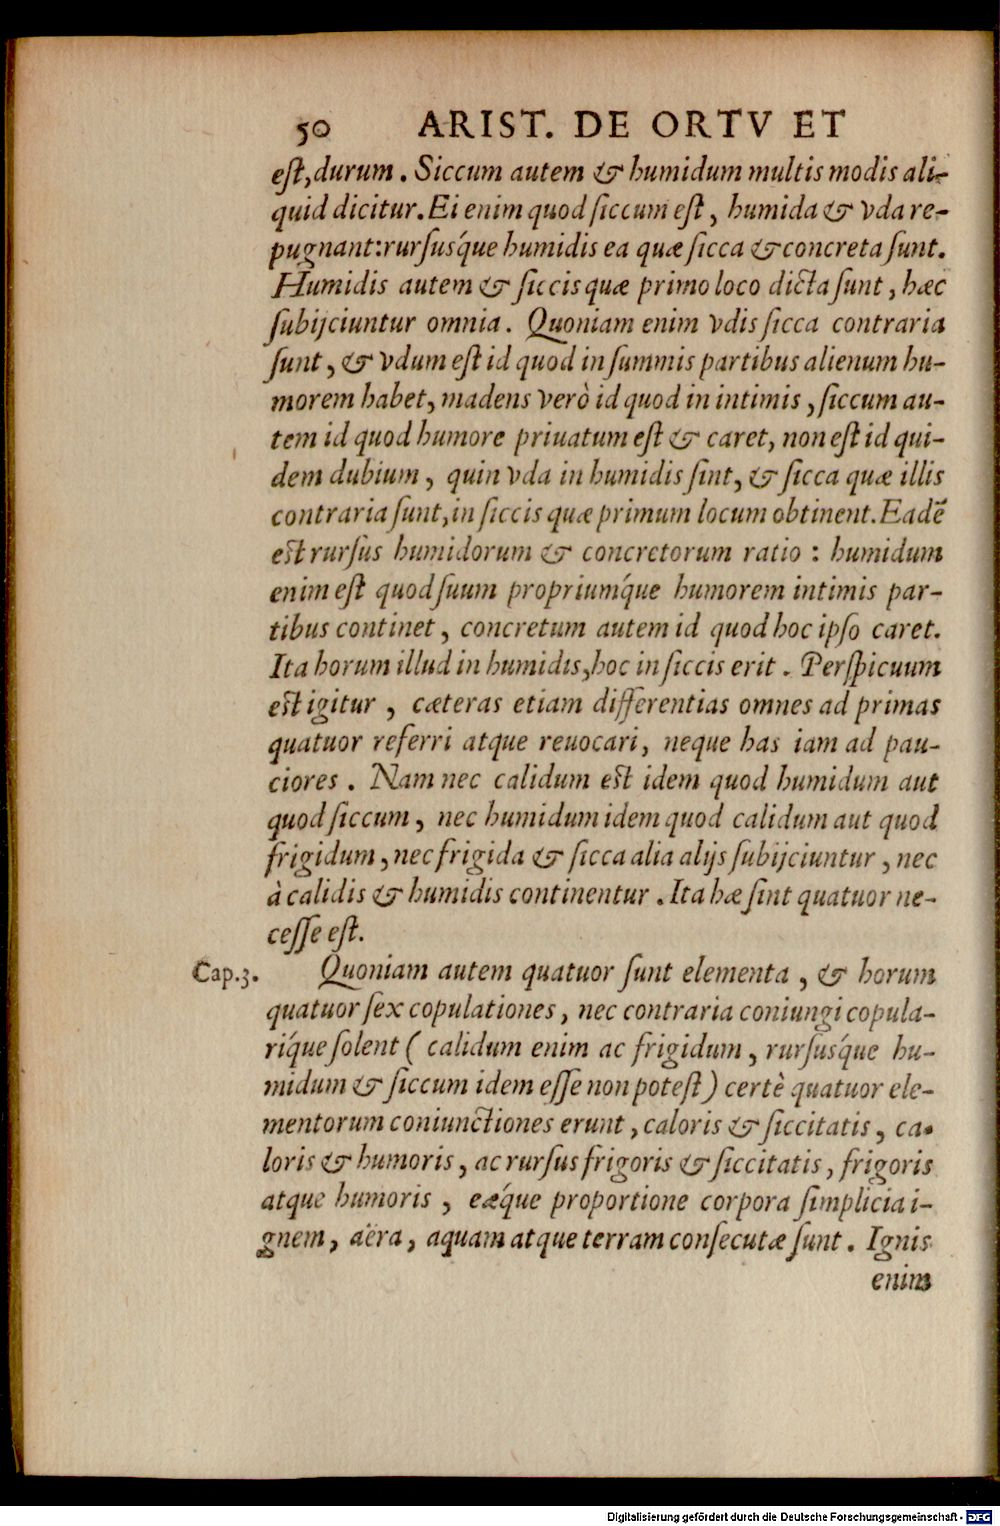 50 ARIST. DE ORTV ET
est, durum. Siccum autem & humidum multis modis ali-
quid dicitur. Ei enim quod siccum est, humida & vda re-
pugnant: rursusq́ue humidis ea quæ sicca & concreta sunt.
Humidis autem & siccis quæ primo loco dicta sunt, hæc
subijciuntur omnia. Quoniam enim vdis sicca contraria
sunt, & vdum est id quod in summis partibus alienum hu-
morem habet, madens verò id quod in intimis, siccum au-
tem id quod humore priuatum est & caret, non est id qui-
dem dubium, quin vda in humidis sint, & sicca quæ illis
contraria sunt, in siccis quæ primum locum obtinent. Eadẽ
est rursus humidorum & concretorum ratio: humidum
enim est quod suum propriumq́ue humorem intimis par-
tibus continet, concretum autem id quod hoc ipso caret.
Ita horum illud in humidis, hoc in siccis erit. Perspicuum
est igitur, cæteras etiam differentias omnes ad primas
quatuor referri atque reuocari, neque has iam ad pau-
ciores. Nam nec calidum est idem quod humidum aut
quod siccum, nec humidum idem quod calidum aut quod
frigidum, nec frigida & sicca alia alijs subijciuntur, nec
à calidis & humidis continentur. Ita hæ sint quatuor ne-
cesse est.
Cap.3. Quoniam autem quatuor sunt elementa, & horum
quatuor sex copulationes, nec contraria coniungi copula-
riq́ue solent (calidum enim ac frigidum, rursusq́ue hu-
midum & siccum idem esse non potest) certè quatuor ele-
mentorum coniunctiones erunt, caloris & siccitatis, ca-
loris & humoris, ac rursus frigoris & siccitatis, frigoris
atque humoris, eæq́ue proportione corpora simplicia i-
gnem, aëra, aquam atque terram consecutæ sunt. Ignis
enim
Digitalisierung gefördert durch die Deutsche Forschungsgemeinschaft - DFG